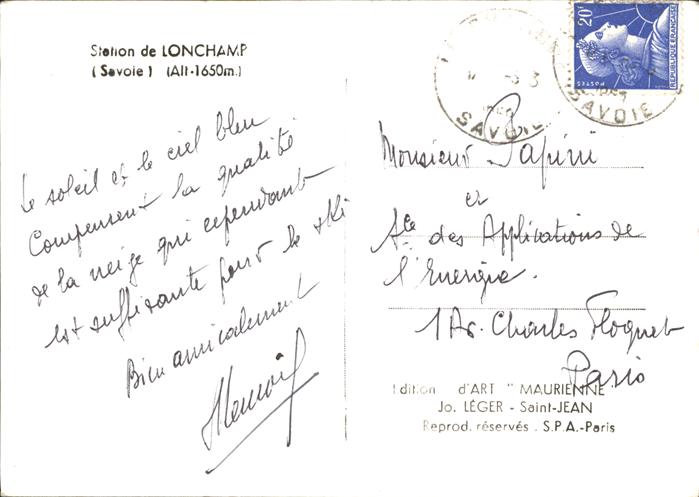 Station de LONCHAMP
(Savoie) (Alt-1650m.)
Le soleil et le ciel bleu
Compensent la qualité
de la neige qui cependant
est suffisante pour le ski
Bien amicalement
20F
POSTES
REPUBLIQUE FRANÇAISE
SAVOIE
SAVOIE
Monsieur Papini
Sté des Applications de
l'Energie.
1 Av. Charles Floquet
Paris
Edition d'ART "MAURIENNE"
Jo. LÉGER - Saint-JEAN
Reprod. réservés . S.P.A.-Paris